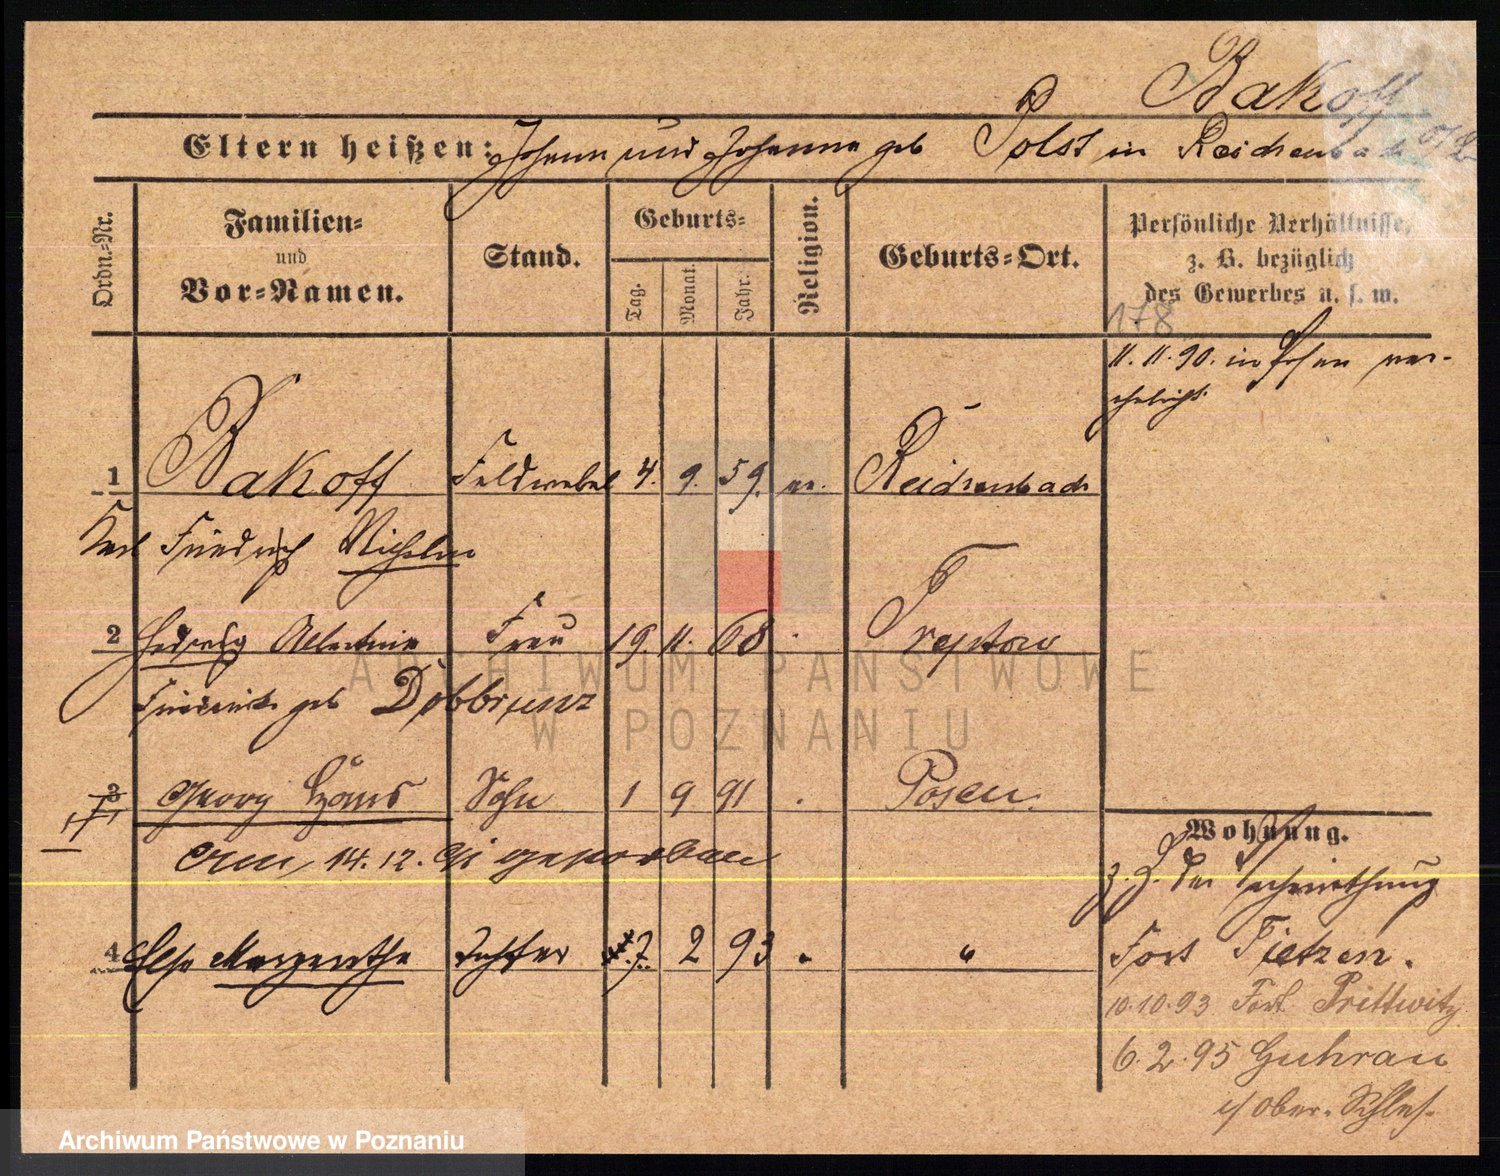 Bakoff
Eltern heißen: Johann und Johanna geb Polst in Reichenbach
Ordn.=Nr.
Familien=
und
Vor=Namen.
Stand.
Geburts=
Tag.
Monat.
Jahr.
Religion.
Geburts=Ort.
Persönliche Verhältnisse,
z. B. bezüglich
des Gewerbes u. s. w.
178
11. 11. 90. in Posen ver-
ehelicht
1 Bakoff Feldwebel 4. 9. 59. ev. Reichenbach
Karl Friedrich Wilhelm
2 Hedwig Albertine Frau 19. 11. 68 Treptow
Friederike geb Dobbrunz
3 Georg Hans Sohn 1 9 91 Posen.
am 14. 12. 91 gestorben
4 Else Margarethe Tochter 7. 2 93 "
Wohnung.
z. Z. der
Fort Tietzen.
10.10.93 Fort Prittwitz
6.2.95 Guhrau
i/ Ober-Schles.
ARCHIWUM PAŃSTWOWE
W POZNANIU
Archiwum Państwowe w Poznaniu